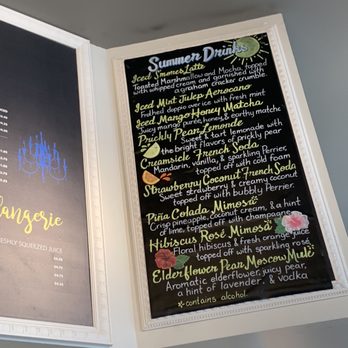 langerie
ESHLY SQUEEZED JUICE
Summer Drinks
Iced Smores Latte
Toasted Marshmallow and Mocha, topped
with whipped cream and garnished with
a graham cracker crumble.
Iced Mint Julep Aerocano
Frothed doppio over ice with fresh mint
Iced Mango Honey Matcha
Juicy mango puree, honey & earthy matcha
Prickly Pear Lemonade
Sweet & tart lemonade with
the bright flavors of prickly pear
Creamsicle French Soda
Mandarin, vanilla, & sparkling Perrier,
topped off with cold foam
Strawberry Coconut French Soda
Sweet strawberry & creamy coconut
topped off with bubbly Perrier.
Piña Colada Mimosa*
Crisp pineapple, coconut cream, & a hint
of lime, topped off with champagne
Hibiscus Rosé Mimosa*
Floral hibiscus & fresh orange juice
topped off with sparkling rosé
Elderflower Pear Moscow Mule*
Aromatic elderflower, juicy pear,
a hint of lavender, & vodka
*contains alcohol